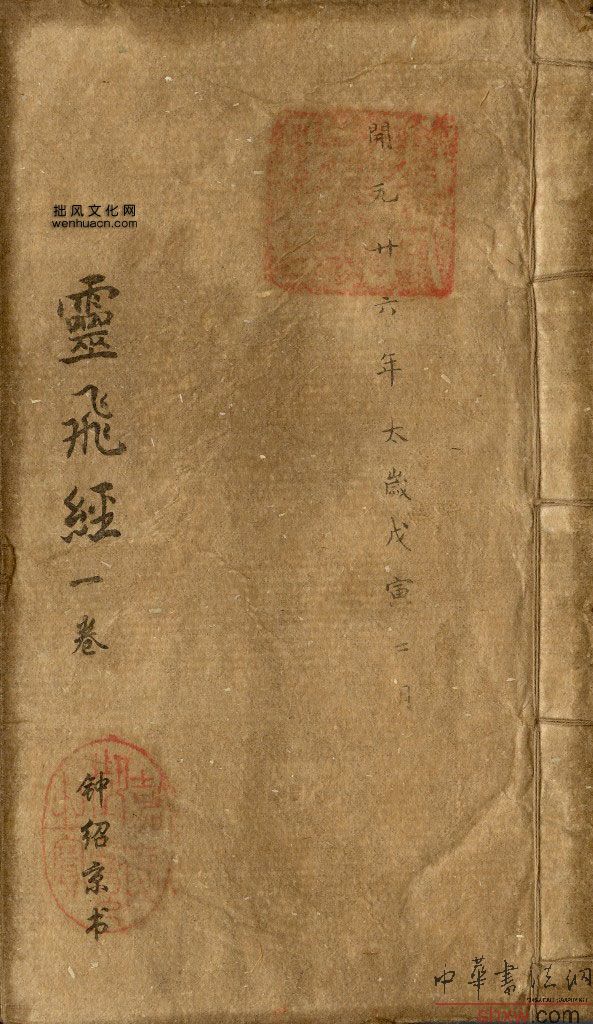 開元廿六年太歲戊寅二月
靈飛經一卷
钟绍京书
拙风文化网
wenhuacn.com
中華書法网
shxw.com